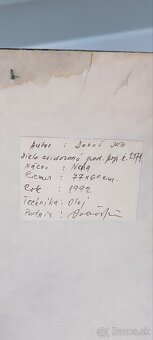 Autor : Doboš Ján
Dielo evidované pod. pop. č. 2171
Názov : Neha
Rozmer : 77x62cm.
Rok : 1992
Technika: Olej
Podpis :
© bazar.sk